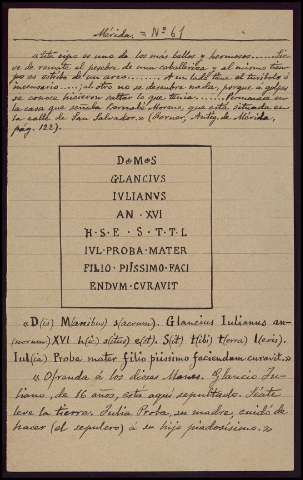 Mérida. = Nº 61
«Este cipo es uno de los más bellos y hermosos......Sir-
ve de remate el pesebre de una caballeriza y al mismo tiem-
po es estribo de un arco....... A un lado tiene el turíbulo ó
incensario.....; al otro no se descubre nada, porque á golpes
se conoce hicieron saltar lo que tenía...... Permanece en
la casa que señala Bernabé Moreno, que está situada en
la calle de San Salvador.» (Forner, Antig. de Mérida,
pág. 122).
D•M•S
GLANCIVS
IVLIANVS
AN · XVI
H·S·E · S·T·T·L
IVL·PROBA·MATER
FILIO·PIISSIMO·FACI
ENDVM·CVRAVIT
«D(is) M(anibus) s(acrum). Glancius Iulianus an-
(norum) XVI h(ic) s(itus) e(st). S(it) t(ibi) t(erra) l(evis).
Iul(ia) Proba mater filio piissimo faciendum curavit.»
«Ofrenda á los dioses Manes. Glancio Ju-
liano, de 16 años, está aquí sepultado. Séate
leve la tierra. Julia Proba, su madre, cuidó de
hacer (el sepulcro) á su hijo piadosísimo.»